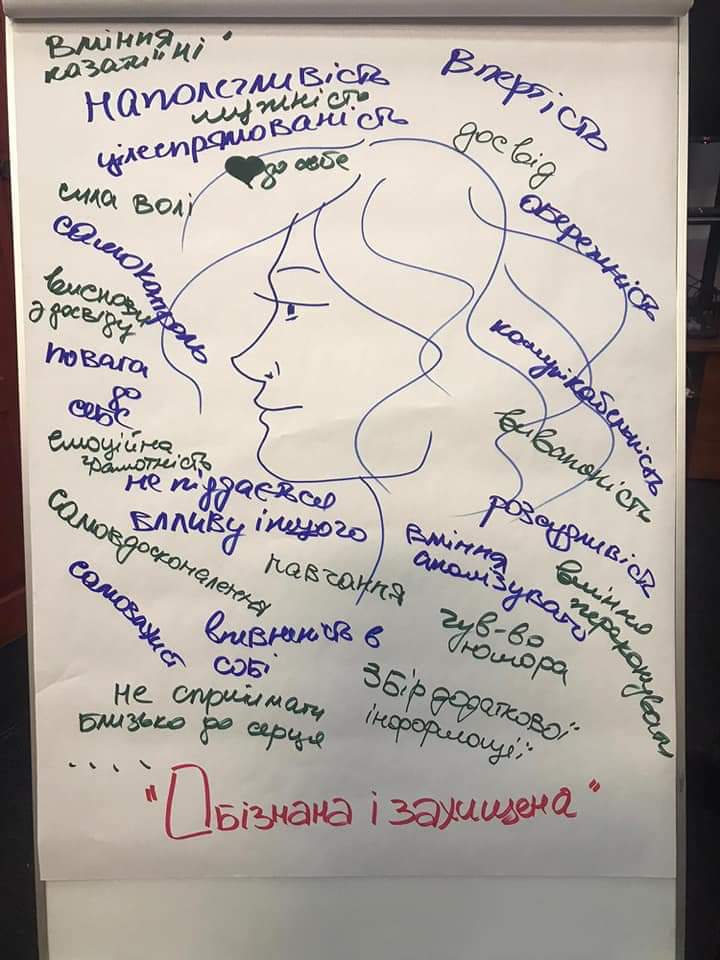 Вміння
казати "ні"
наполегливість
мужність
цілеспрямованість
♥ до себе
Впертість
досвід
сила волі
обережність
самоконтроль
висновки
з досвіду
повага
до
себе
комунікабельність
виваженість
емоційна
грамотність
не піддаєвся
впливу іншого
розсудливість
самовдосконалення
навчання
вміння
аналізувати
вміння
переконувати
самозахист
впевненість в
собі
чув-во
юмора
не сприймати
близько до серця
збір додаткової
інформації
....
"Обізнана і захищена"